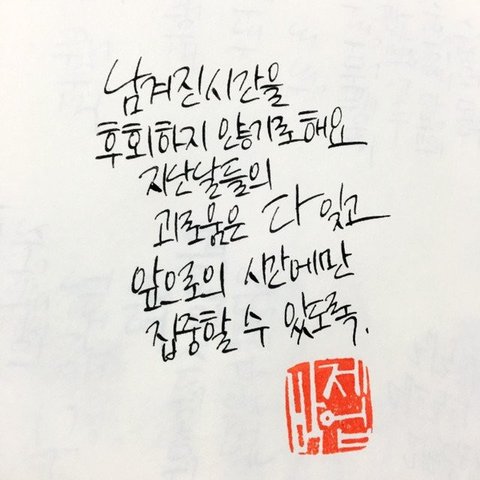 남겨진시간을
후회하지 않기로해요
지난날들의
괴로움은 다 잊고
앞으로의 시간에만
집중할 수 있도록.